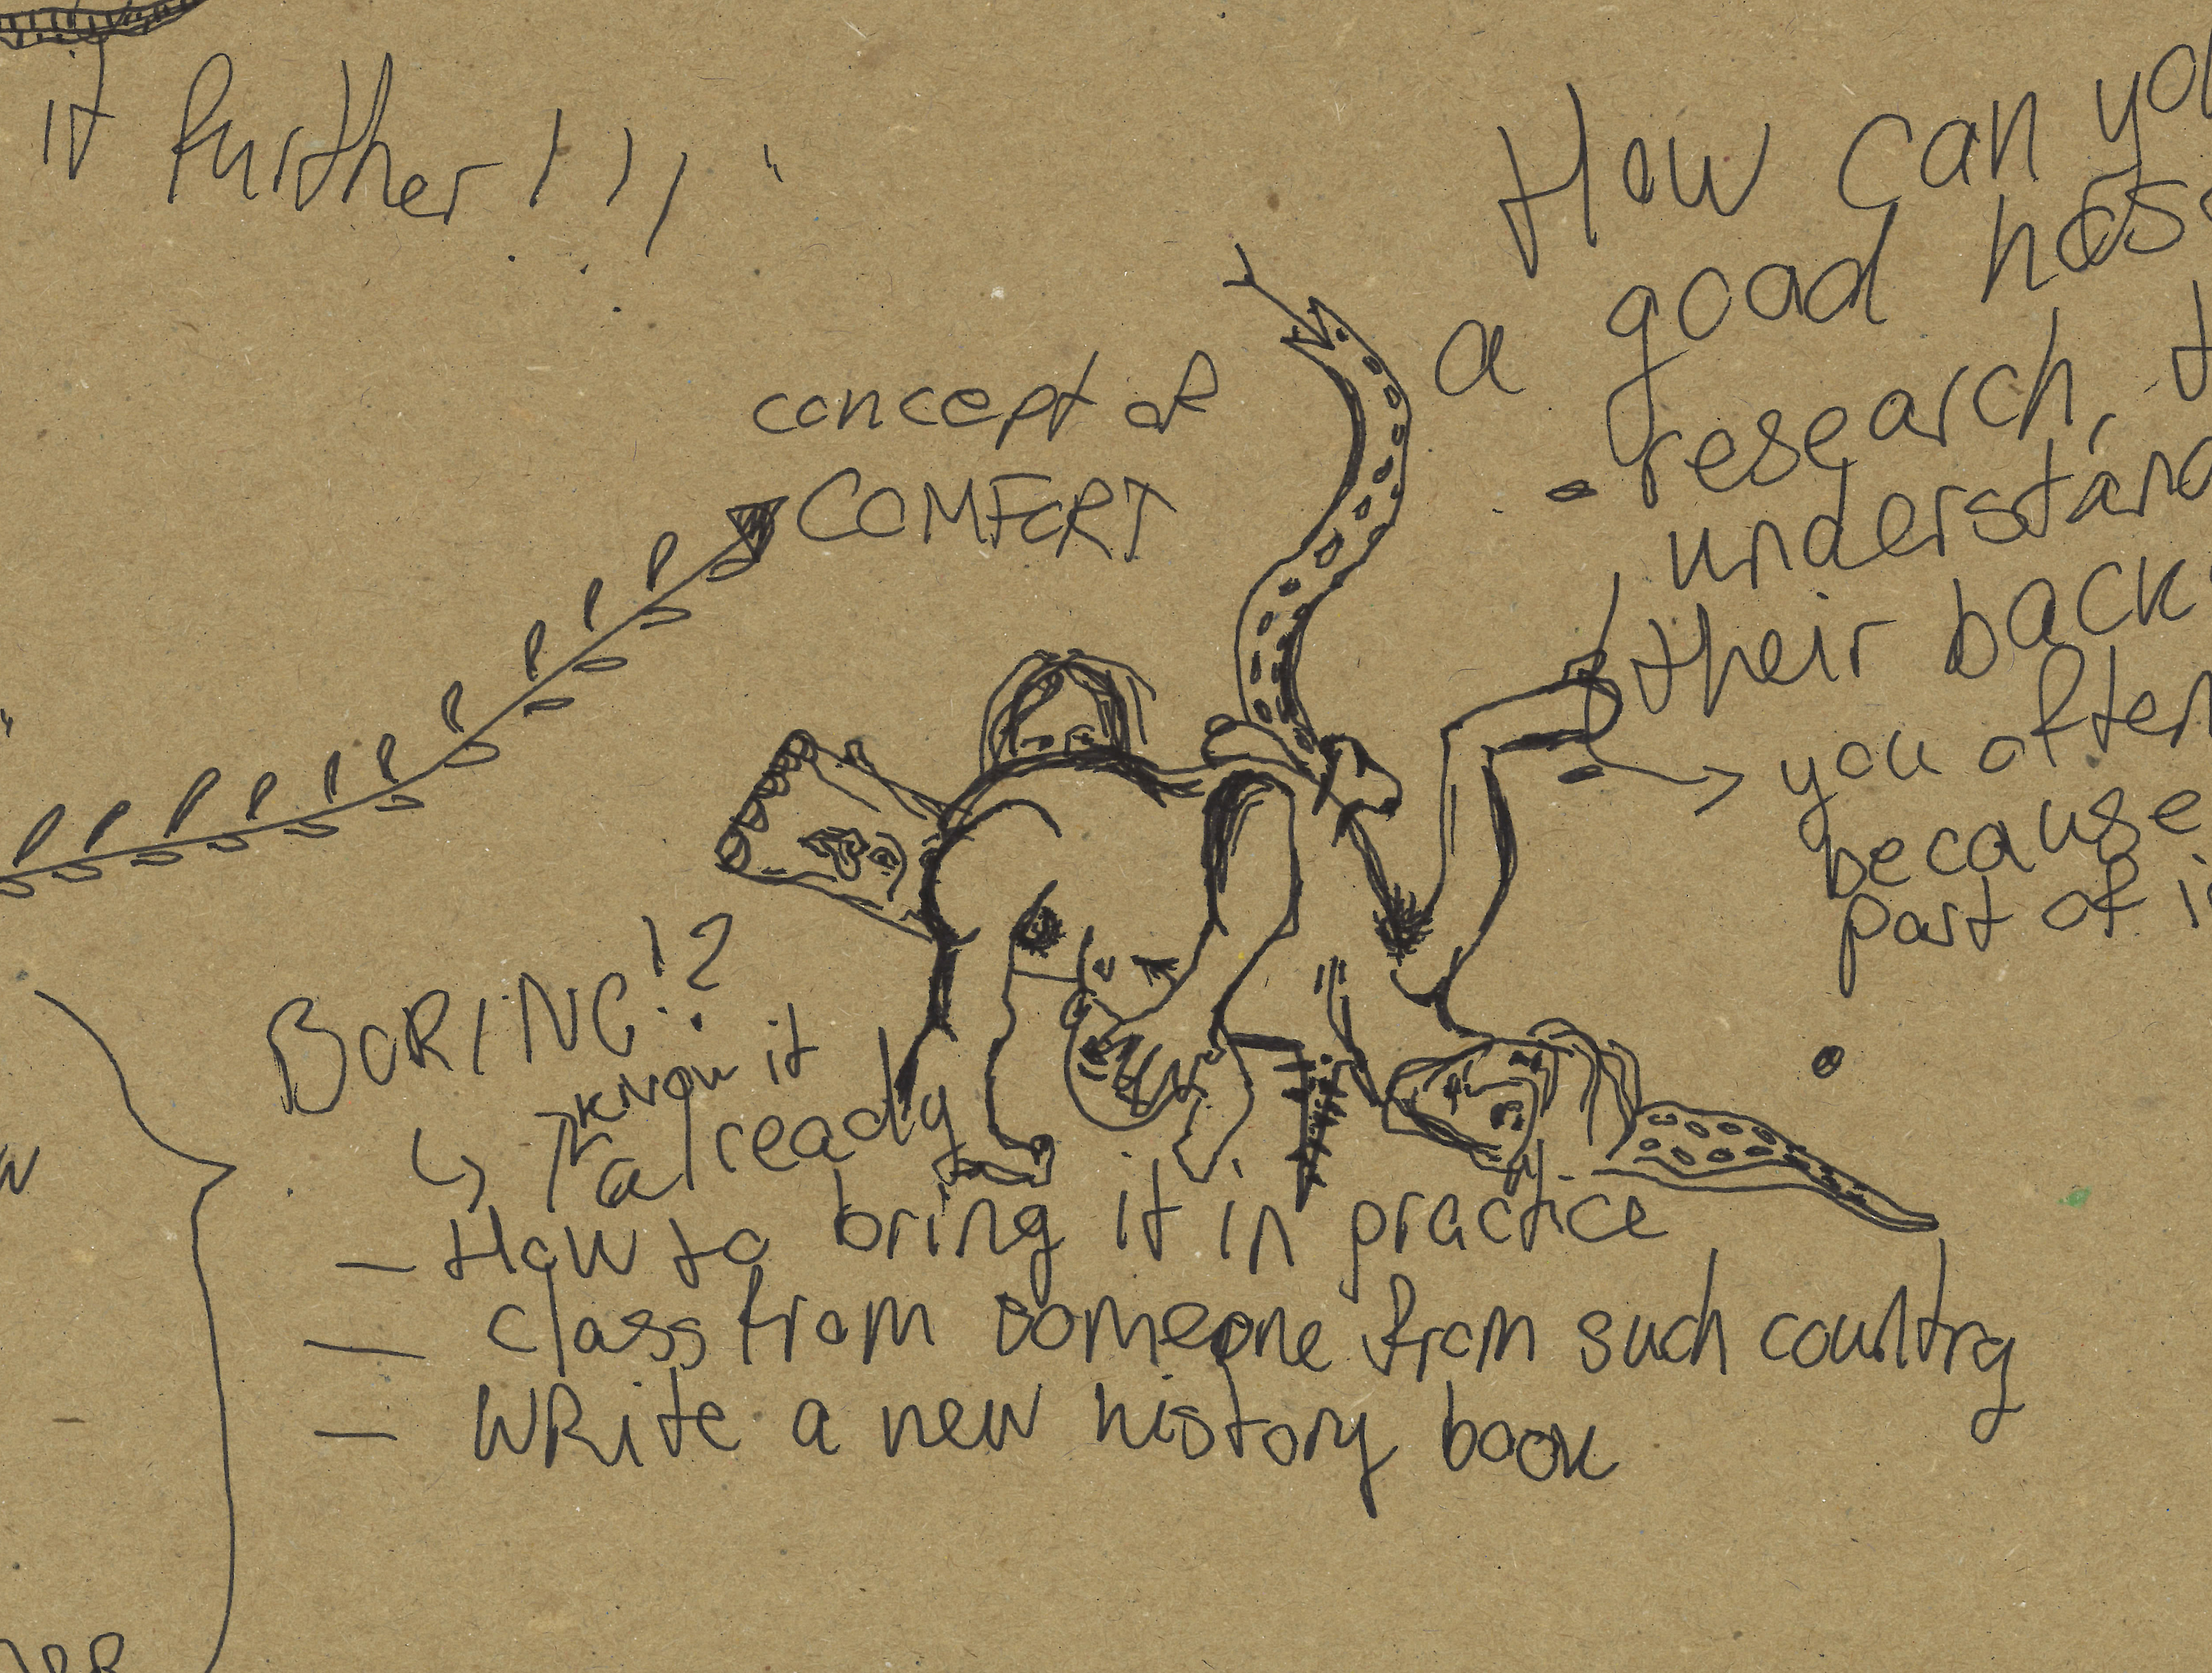 it further!!!"
How can yo
a good hos
- research,
understan
their back
you often
because
part of i
concept of
COMFORT
BORING!?
↳ I know it
already
- How to bring it in practice
- class from someone from such country
- WRite a new history book